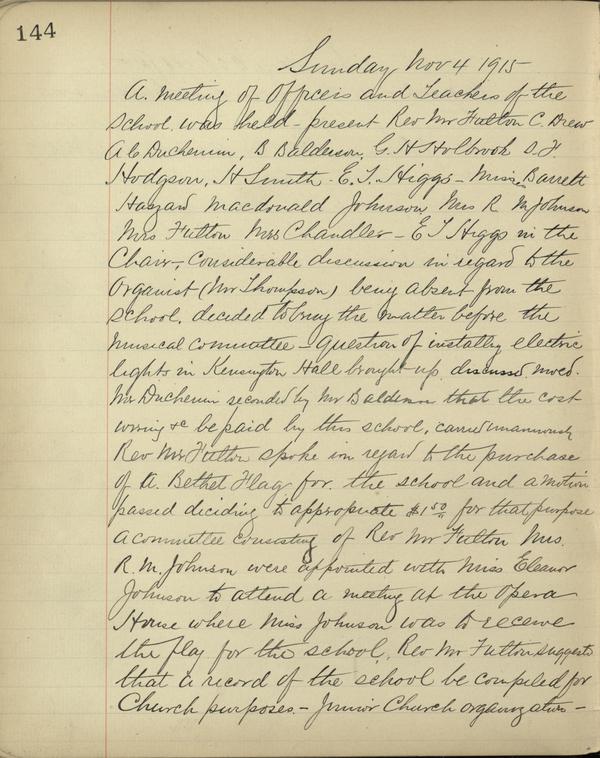 144
Sunday Nov 4 1915
A. Meeting of Officers and Teachers of the
School. was held - present Rev Mr Fulton C. Drew
A C Duchemin, B Balderson, G. H Holbrook S. F.
Hodgson, H Smith - E. T. Higgs - Misses Barrett
Hazard Macdonald Johnson, Mrs R M Johnson
Mrs Fulton Mrs Chandler - E T Higgs in the
Chair -, Considerable discussion in regard to the
Organist (Mr Thompson) being absent from the
School. decided to bring the matter before the
Musical Committee - Question of installing electric
lights in Kensington Hall brought up, discussed, moved.
Mr Duchemin seconded by Mr Balderson that the cost
wiring &c be paid by this school, carried unanimously
Rev Mr Fulton spoke in regard to the purchase
of A. Bethel Flag for the school and a motion
passed deciding to appropriate $1.50 for that purpose
a committee consisting of Rev Mr Fulton Mrs.
R. M. Johnson were appointed with Miss Eleanor
Johnson to attend a meeting at the Opera
House where Miss Johnson was to receive
the flag for the school, Rev Mr Fulton suggests
that a record of the school be compiled for
Church purposes. - Junior Church organization -